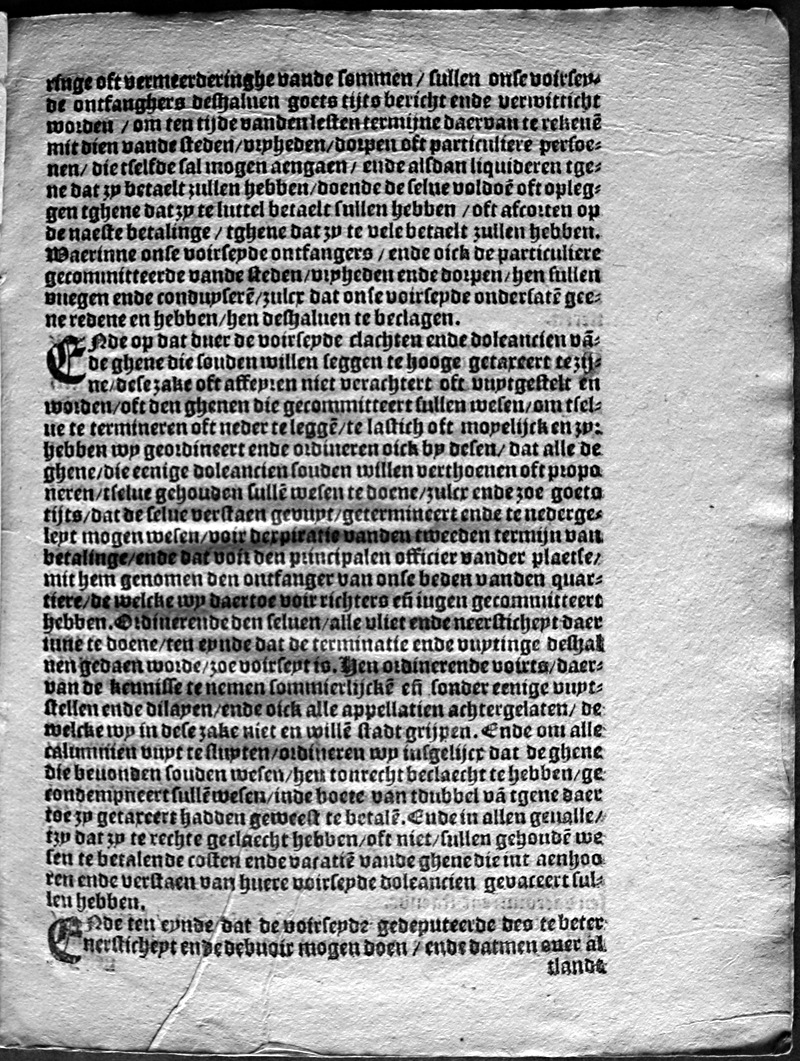 ringe oft vermeerderinghe vande sommen / sullen onse voirsey⸗
de ontfanghers deshaluen goets tijts bericht ende verwitticht
worden / om ten tijde vanden lesten termijne daer van te rekenē
mit dien vande steden / vryheden / dorpen oft particuliere persoe⸗
nen / die tselfde sal mogen aengaen / ende alsdan liquideren tge⸗
ne dat zy betaelt zullen hebben / doende de selue voldoē oft opleg⸗
gen tghene dat zy te luttel betaelt sullen hebben / oft afcorten op
de naeste betalinge / tghene dat zy te vele betaelt zullen hebben.
Waerinne onse voirseyde ontfangers / ende oick de particuliere
gecommitteerde vande steden / vryheden ende dorpen / hen sullen
vuegen ende conduyserē / zulcx dat onse voirseyde ondersatē gee⸗
ne redene en hebben / hen deshaluen te beclagen.
ENde op dat duer de voirseyde clachten ende doleancien vā⸗
de ghene die souden willen seggen te hooge getaxeert te zij⸗
ne / dese zake oft affeyren niet verachtert oft vuytgestelt en
worden / oft den ghenen die gecommitteert sullen wesen / om tsel⸗
ue te termineren oft neder te leggē / te lastich oft moyelijck en zy:
hebben wy geordineert ende ordineren oick by desen / dat alle de
ghene / die eenige doleancien souden willen verthoenen oft propo
neren / tselue gehouden sullē wesen te doene / zulcx ende zoe goets
tijts / dat de selue verstaen gevuyt / getermineert ende te nederge⸗
leyt mogen wesen / voir dexpiratie vanden tweeden termijn van
betalinge / ende dat voir den principalen officier vander plaetse /
mit hem genomen den ontfanger van onse beden vanden quar⸗
tiere / de welcke wy daertoe voir richters eñ iugen gecommitteert
hebben. Ordinerende den seluen / alle vliet ende neersticheyt daer
inne te doene / ten eynde dat de terminatie ende vuytinge deshal
uen gedaen worde / zoe voirseyt is. Hen ordinerende voirts / daer⸗
van de kennisse te nemen sommierlijckē eñ sonder eenige vuyt⸗
stellen ende dilayen / ende oick alle appellatien achtergelaten / de
welcke wy in dese zake niet en willē stadt grijpen. Ende om alle
calumnien vuyt te sluyten / ordineren wy insgelijcx dat de ghene
die beuonden souden wesen / hen tonrecht beclaecht te hebben / ge
condempneert sullē wesen / inde boete van tdubbel vā tgene daer
toe zy getaxeert hadden geweest te betalē. Ende in allen geualle /
tzy dat zy te rechte geclaecht hebben / oft niet / sullen gehondē we
sen te betalende costen ende vacatiē vande ghene die int aenhoo
ren ende verstaen van huere voirseyde doleancien gevaceert sul⸗
len hebben.
ENde ten eynde dat de voirseyde gedeputeerde des te beter
nersticheyt ende debuoir mogen doen / ende datmen ouer al
tlande